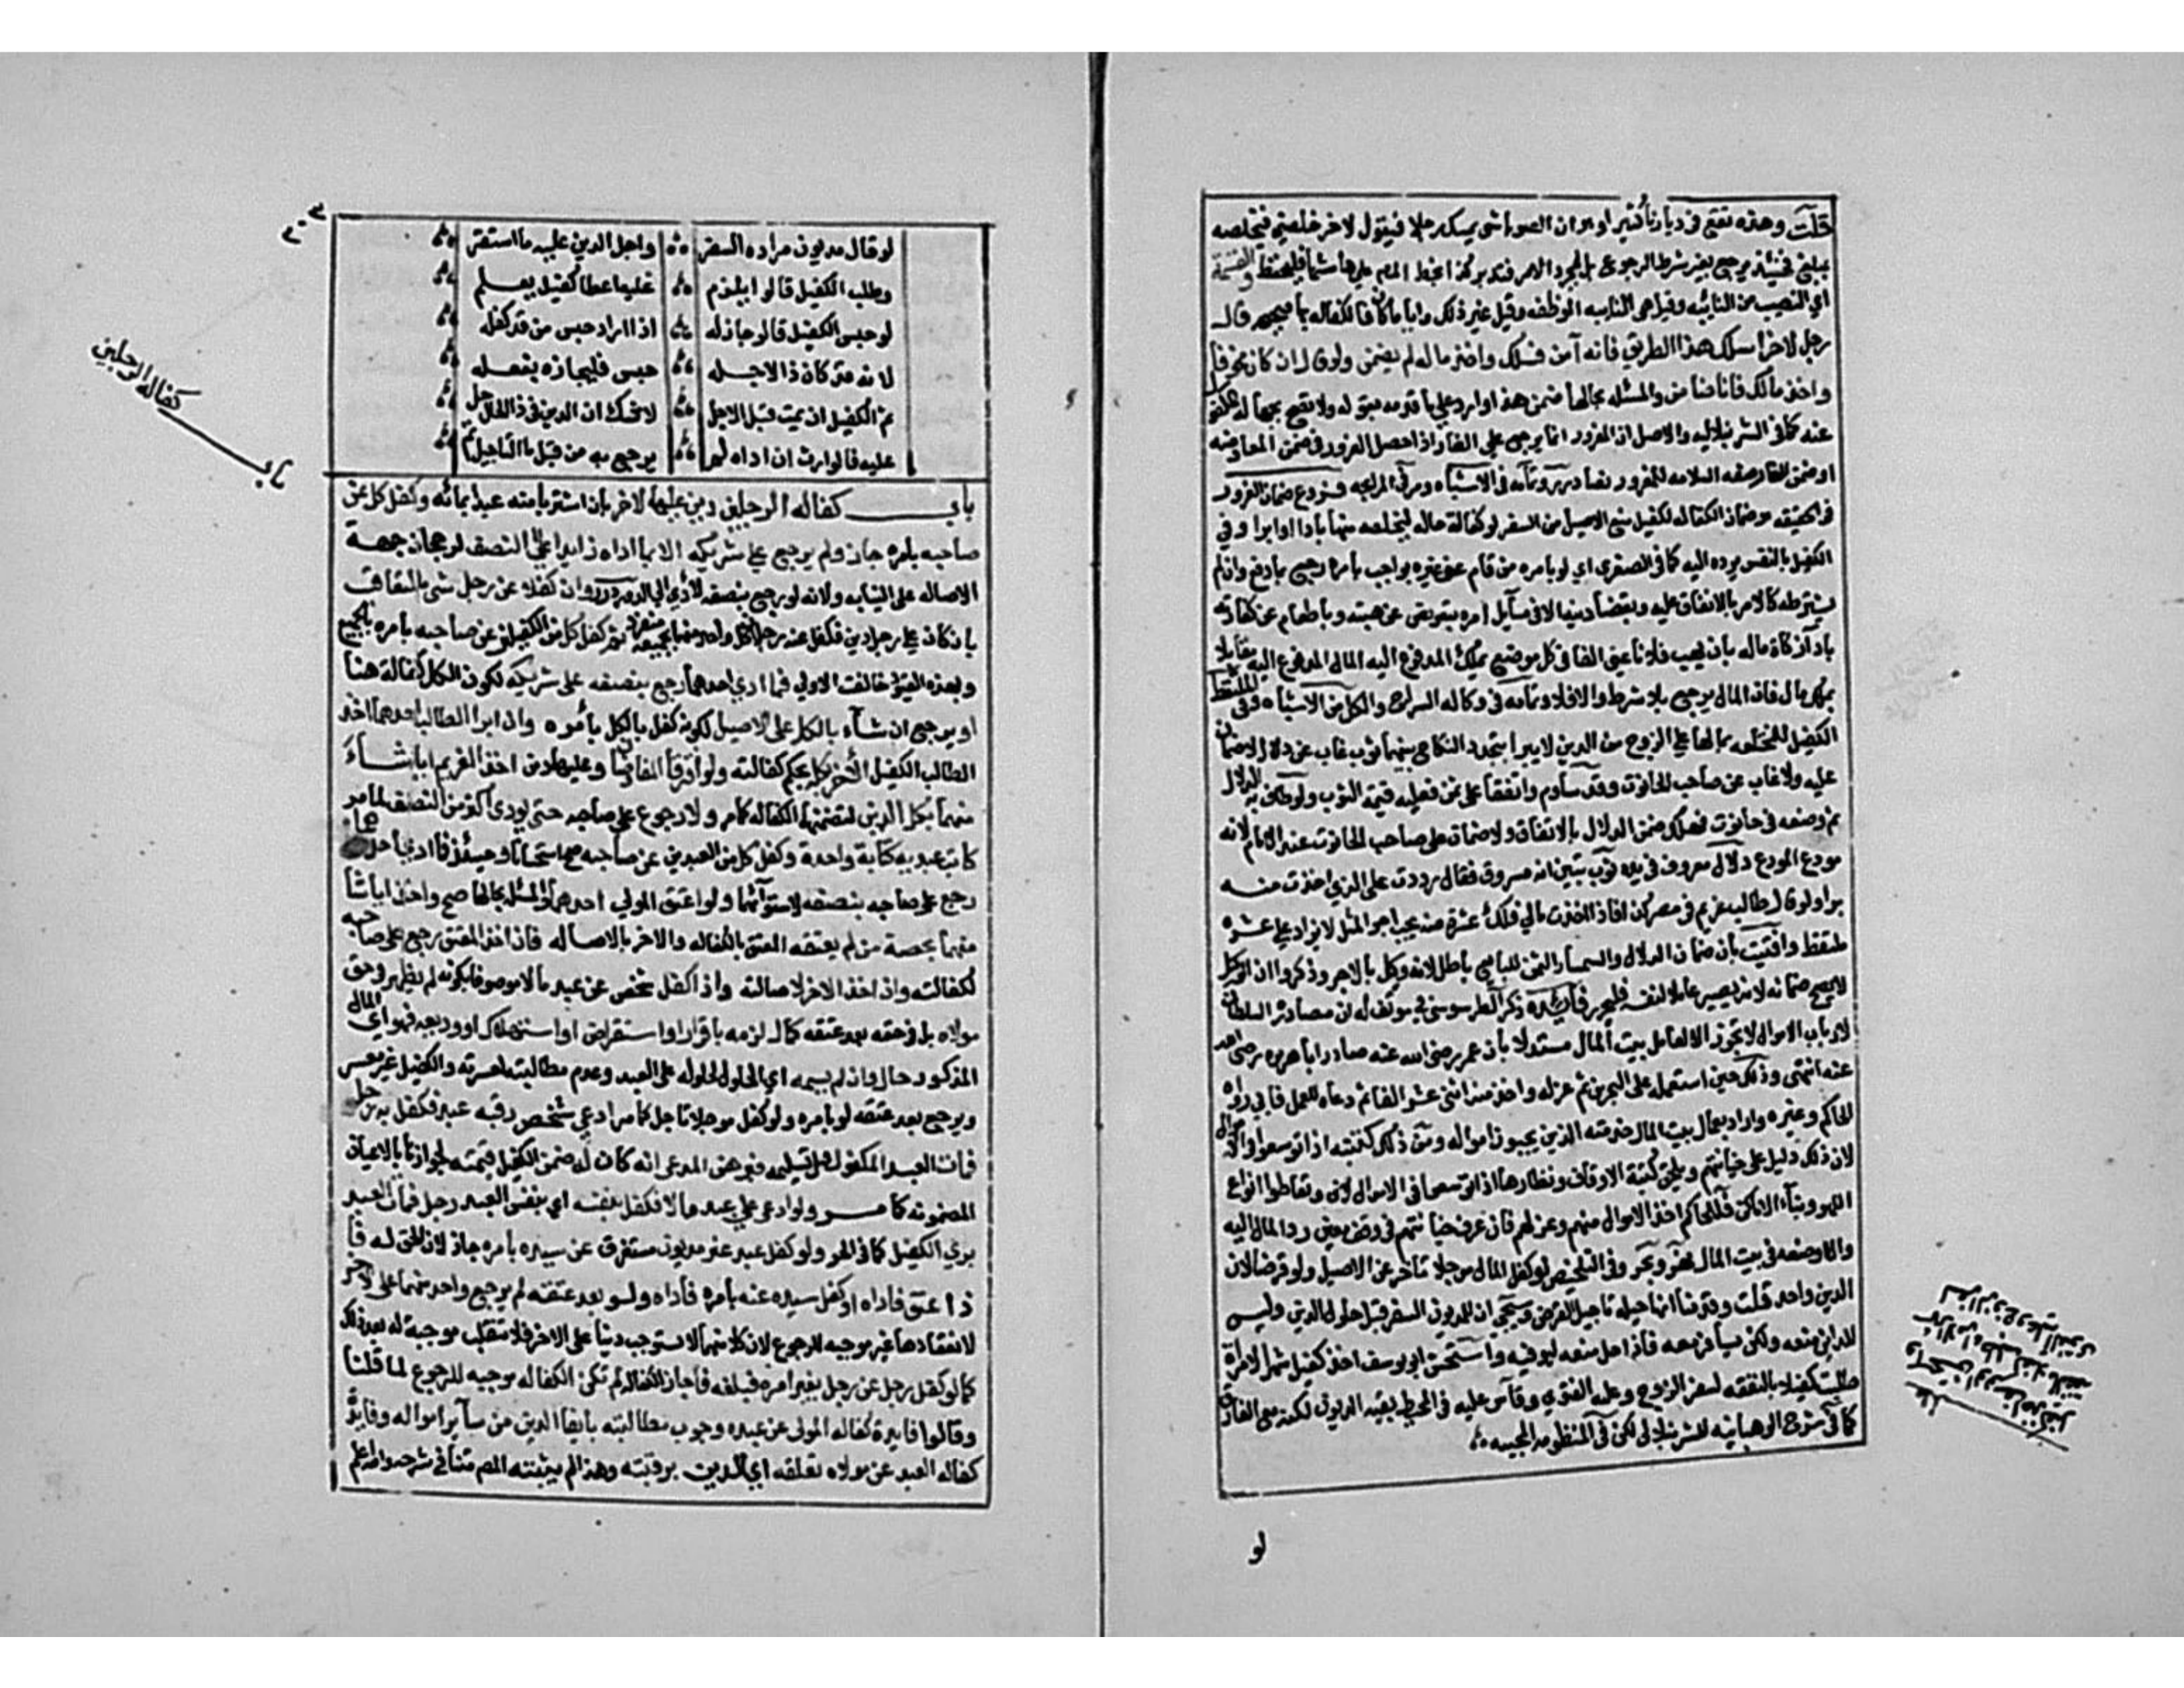 قلت وهذه تقع في ديارنا كثيرا وهو ان الصوباشي يمسك رجلا فيقول لاخر خلصني فيخلصه
بمبلغ فحينئذ يرجع بغير شرط الرجوع بل بمجرد الامر فتدبر كذا بخط المص على هامشها فليحفظ والقسمة
اي النصيب من النائبه وقيل هي النايبه الموظفه وقيل غير ذلك وايا ما كان فالكفاله بها صحيحه قال
رجل لاخر اسلك هذا الطريق فانه آمن فسلك واخذ ماله لم يضمن ولو قال ان كان مخوفا
واخذ مالك فانا ضامن والمسئله بحالها ضمن هذا وارد على ما قدمه بقوله ولا تصح بجهالة المكفول
عنه كما في الشرنبلاليه والاصل ان المغرور انما يرجع على الغار اذا حصل الغرور في ضمن المعاوضه
او ضمن الغار صفه السلامه للمغرور نصا درر وتمامه في الاشباه ومر في المرابحه فروع ضمان الغرور
في الحقيقه هو ضمان الكفاله للكفيل منع الاصيل من السفر لو كفالة حاله ليخلصه منها بادا او ابرا وفي
الكفيل بالنفس يرده اليه كما في الصغرى اي لو بامره من قام عن غيره بواجب بامره رجع بما دفع وان لم
يشترطه كالامر بالانفاق عليه وبقضا دينه الا في مسآيل امره بتعويض عن هبته وباطعام عن كفارته
بادآ زكاة ماله بان يهب فلانا عني الفا في كل موضع يملك المدفوع اليه المال المدفوع اليه مقابلا
بملك مال فان المال يرجع بلا شرط والا فلا وتمامه في وكاله السراج والكل من الاشباه وفي الملتقط
الكفيل للمختلعه بما لها على الزوج من الدين لا يبرا بتجدد النكاح بينهما ثوب غاب عن دلال لا ضمان
عليه ولو غاب عن صاحب الحانوت وقد ساوم واتفقا على ثمن فعليه قيمة الثوب ولو طاف به الدلال
ثم وضعه في حانوت فهلك ضمن الدلال بالاتفاق ولا ضمان على صاحب الحانوت عند الامام لانه
مودع المودع دلال معروف في يده ثوب تبين انه مسروق فقال رددت على الذي اخذت منه
برا ولو قال طالب غريمي في مصر كذا فاذا اخذت مالي فلك عشرة منه يجب اجر المثل لا يزاد على عشره
ملتقط وافتيت بان ضمان الدلال والسمسار الثمن للبايع باطل لانه وكيل بالاجر وذكروا ان الوكيل
لا يصح ضمانه لانه يصير عاملا لنفسه فليحرر فآيده ذكر الطرسوسي في مولف له ان مصادرة السلطان
لارباب الاموال لا تجوز الا لعمال بيت المال مستدلا بان عمر رضي الله عنه صادر ابا هريره رضي الله
عنه انتهى وذلك حين استعمله على البحرين ثم عزله واخذ منه اثني عشر الفا ثم دعاه للعمل فابى رواه
الحاكم وغيره واراد بعمال بيت المال خدمته الذين يجبون امواله ومن ذلك كتبته اذا توسعوا في الاموال
لان ذلك دليل على خيانتهم ويلحق بهم كتبة الاوقاف ونظارها اذا توسعوا في الاموال وتعاطوا انواع
اللهو وبناء الاماكن فللحاكم اخذ الاموال منهم وعزلهم فان عرف خيانتهم في وقف معين رد المال اليه
والا وضعه في بيت المال نهر وبحر وفي التلخيص لو كفل المال موجلا تاخر عن الاصيل ولو قرضا لان
الدين واحد قلت وقدمنا انها حيلة تاجيل القرض وسيجي ان للمديون السفر قبل حلول الدين وليس
للداين منعه ولكن يسافر معه فاذا حل منعه ليوفيه واستحسن ابو يوسف اخذ كفيل شهرا لامراة
طلبت كفيلا بالنفقه لسفر الزوج وعليه الفتوى وقاس عليه في المحيط بقية الديون لكنه مع الفارق
كما في شرح الوهبانيه للشرنبلالي لكن في المنظومه المحبيه
لو
لو قال مديون مراده السفر واجل الدين عليه ما استقر
وطلب الكفيل قالوا يلزم عليه اعطا كفيل يعلم
لو حبس الكفيل قالو جاز له اذا اراد حبس من قد كفله
لانه قد كان ذا لاجله حبس فليجازه بفعله
ثم الكفيل ان يمت قبل الاجل لا شك ان الدين في ذا الحال حل
عليه فالوارث ان اداه لم يرجع به من قبل ما التاجيل تم
باب كفاله الرجلين
باب كفاله الرجلين دين عليهما لاخر بان اشتريا منه عبدا بمائه وكفل كل عن
صاحبه بامره جاز ولم يرجع على شريكه الا بما اداه زايدا على النصف لرجحان جهة
الاصاله على النيابه ولانه لو رجع بنصفه لادى الى الدور درر وان كفلا عن رجل شي بالتعاقب
بان كان على رجل دين فكفل عنه رجلان كل واحد منهما بجميعه منفردا ثم كفل كل من الكفيلين عن صاحبه بامره بالجميع
وبهذه القيود خالفت الاولى فما ادى احدهما رجع بنصفه على شريكه لكون الكل كفالة هنا
او يرجع ان شآء بالكل على الاصيل لكونه كفل بالكل بامره وان ابرا الطالب احدهما اخذ
الطالب الكفيل الاخر بكله بحكم كفالته ولو افترقا المفاوضان وعليهما دين اخذ الغريم ايا شاء
منهما بكل الدين لتضمنها الكفاله كما مر ولا رجوع على صاحبه حتى يودي اكثر من النصف لما مر
كاتب عبديه كتابة واحدة وكفل كل من العبدين عن صاحبه صح استحسانا وحينئذ فما ادى احدهما
رجع على صاحبه بنصفه لاستوآئهما ولو اعتق المولى احدهما والمسئلة بحالها صح واخذ ايا شا
منهما بحصة من لم يعتقه المعتق بالكفاله والاخر بالاصاله فان اخذ المعتق رجع على صاحبه
لكفالته وان اخذ الاخر لا لاصالته واذا كفل شخص عن عبد مالا موصوفا بكونه لم يظهر في حق
مولاه بل في حقه بعد عتقه كمال لزمه باقرار او استقراض او استهلاك وديعه فهو اي المال
المذكور حال وان لم يسمه اي الحلول لحلوله على العبد وعدم مطالبته لعسرته والكفيل غير معسر
ويرجع بعد عتقه لو بامره ولو كفل موجلا تاجل كما مر ادعى شخص رقبه عبد فكفل به رجل
فمات العبد المكفول قبل تسليمه فبرهن المدعي انه كان له ضمن الكفيل قيمته لجوازها بالاعيان
المضمونه كما مر ولو ادعى على عبد مالا فكفل بنفسه اي بنفس العبد رجل فمات العبد
بري الكفيل كما في الحر ولو كفل عبد غير مديون مستغرق عن سيده بامره جاز لان الحق له فا
ذا عتق فاداه او كفل سيده عنه بامره فاداه ولو بعد عتقه لم يرجع واحد منهما على الاخر
لانعقادها غير موجبه للرجوع لان كلا منهما لا يستوجب دينا على الاخر فلا تنقلب موجبة له بعد ذلك
كما لو كفل رجل عن رجل بغير امره فبلغه فاجاز الكفاله لم تكن الكفاله موجبه للرجوع لما قلنا
وقالوا فايدة كفاله المولى عن عبده وجوب مطالبته بايفاء الدين من سآير امواله وفايدة
كفاله العبد عن مولاه تعلقه اي الدين برقبته وهذا لم يثبته المص متنا في شرحه والله اعلم